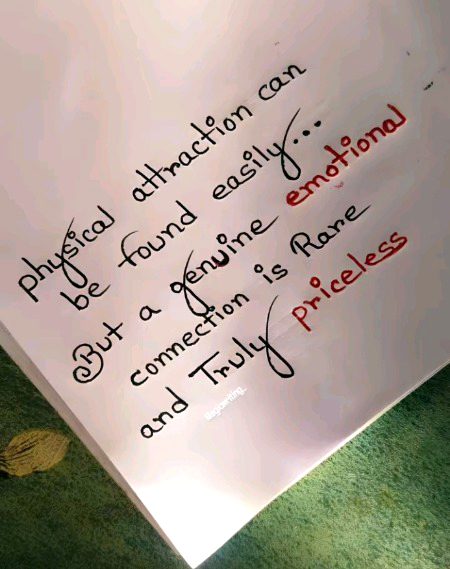 physical attraction can
be found easily...
But a genuine emotional
connection is Rare
and Truly priceless